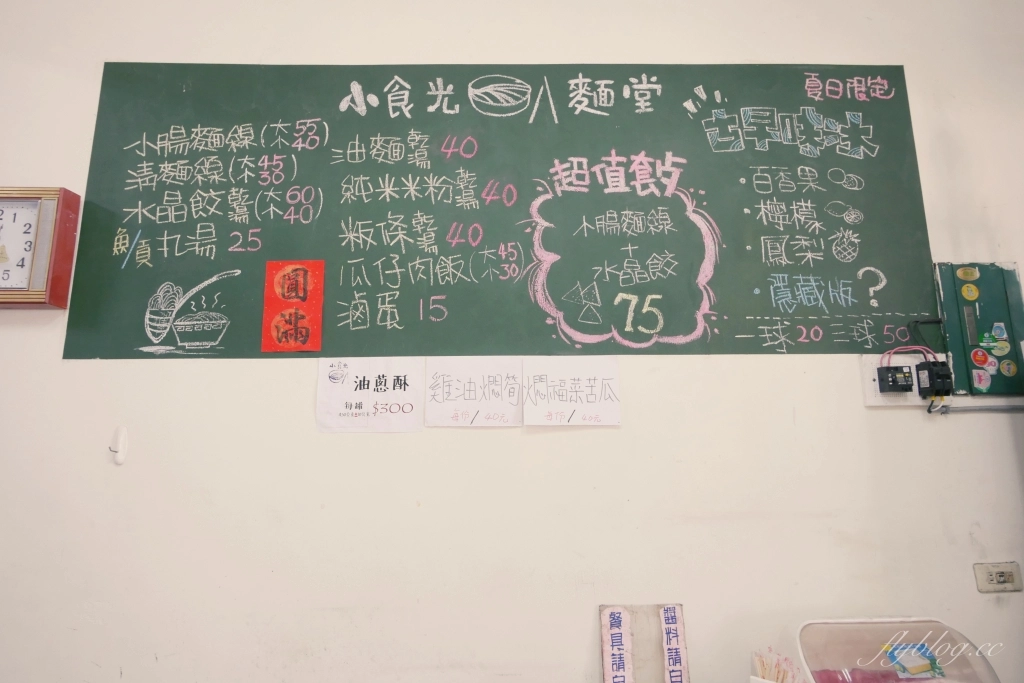 小食光 麵堂
小腸麵線(大55 小40)
清麵線(大45 小30)
水晶餃乾湯(大60 小40)
魚頁丸湯 25
油麵乾湯 40
純米米粉乾湯 40
粄條乾湯 40
瓜仔肉飯(大45 小30)
滷蛋 15
圓滿
超值套占
小腸麵線
+
水晶餃
75
夏日限定
古早味冰
·百香果
·檸檬
·鳳梨
·隱藏版?
一球20 三球50
小食光
油蔥酥
每罐 $300
雞油燜筍
每份/40元
燜福菜苦瓜
每份/40元
餐具請自
醬料請自
12
1
2
3
4
5
flyblog.cc